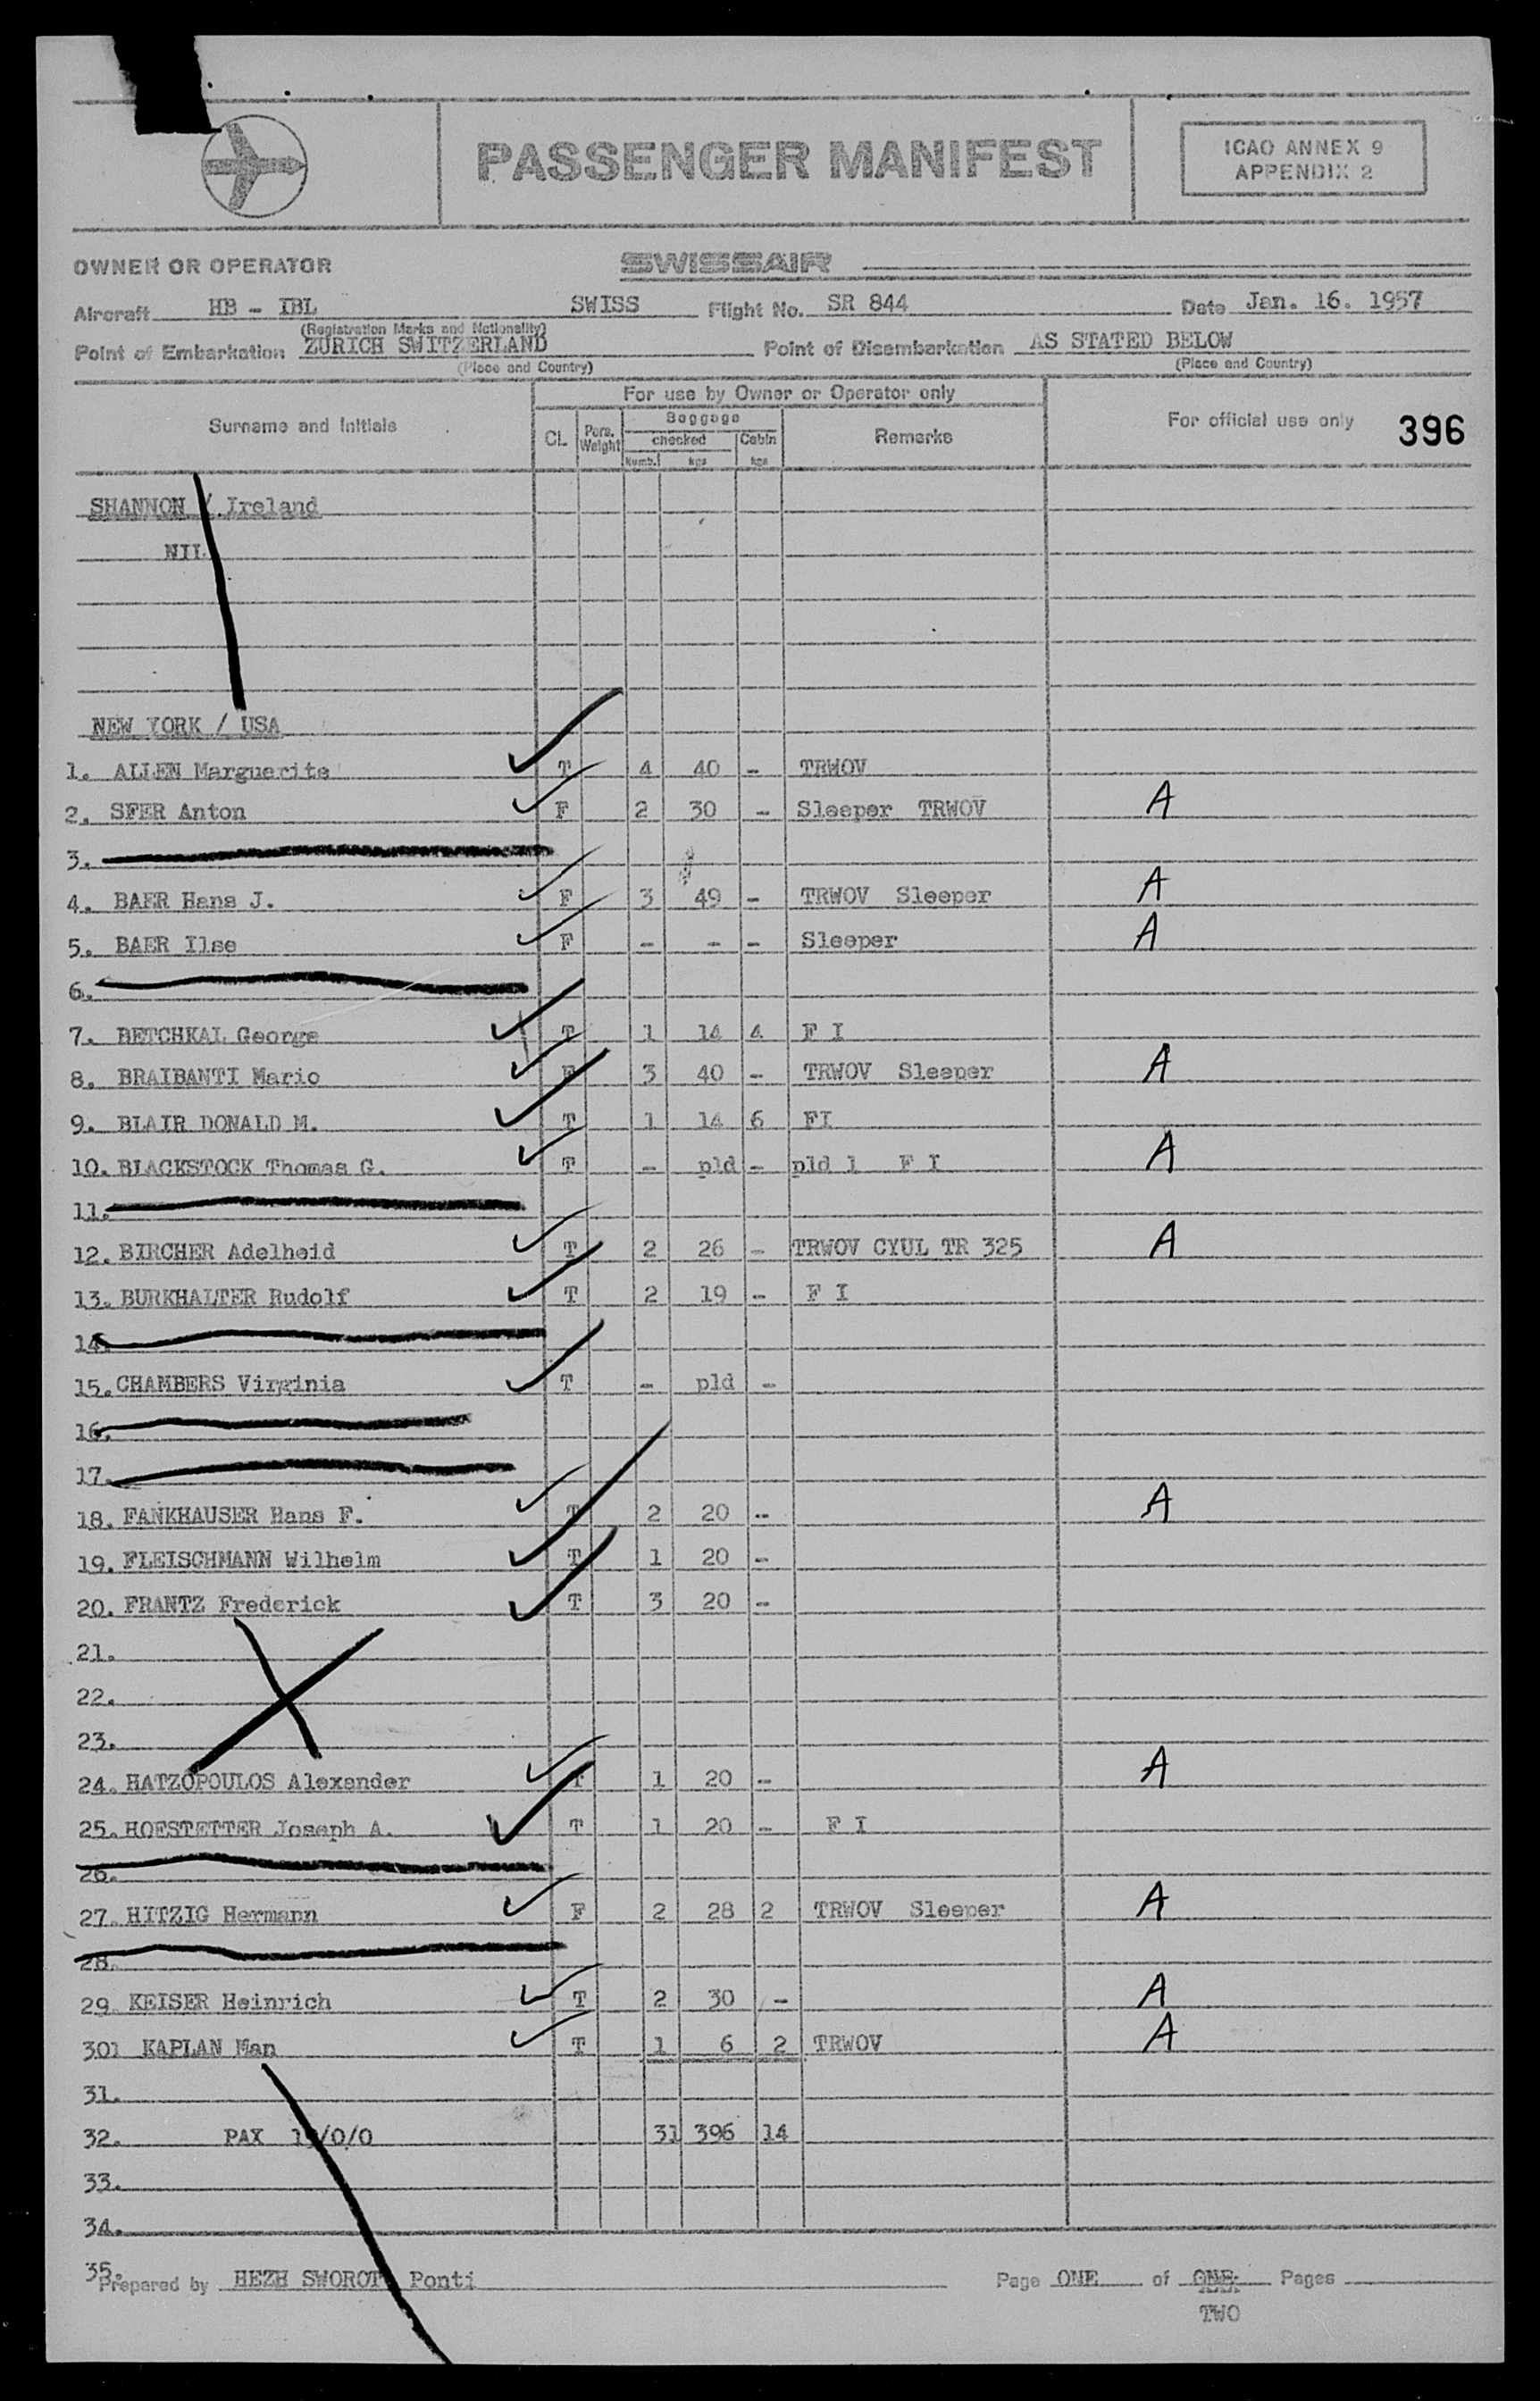 PASSENGER MANIFEST
ICAO ANNEX 9
APPENDIX 2
OWNER OR OPERATOR SWISSAIR
Aircraft HB - IBL SWISS Flight No. SR 844 Date Jan. 16. 1957
(Registration Marks and Nationality)
Point of Embarkation ZURICH SWITZERLAND Point of Disembarkation AS STATED BELOW
(Place and Country) (Place and Country)
For use by Owner or Operator only
Surname and Initials CL. Pers. Weight Baggage checked Numb. kgs Cabin kgs Remarks For official use only 396
SHANNON / Ireland
NIL
NEW YORK / USA
1. ALLEN Marguerite T 4 40 - TRWOV
2. SFER Anton F 2 30 - Sleeper TRWOV A
3.
4. BAER Hans J. F 3 49 - TRWOV Sleeper A
5. BAER Ilse F - - - Sleeper A
6.
7. BETCHKAL George T 1 14 4 F I
8. BRAIBANTI Mario F 3 40 - TRWOV Sleeper A
9. BLAIR DONALD M. T 1 14 6 FI
10. BLACKSTOCK Thomas G. T - pld - pld 1 F I A
11.
12. BIRCHER Adelheid T 2 26 - TRWOV CYUL TR 325 A
13. BURKHALTER Rudolf T 2 19 - F I
14.
15. CHAMBERS Virginia T - pld -
16.
17.
18. FANKHAUSER Hans F. T 2 20 -- A
19. FLEISCHMANN Wilhelm T 1 20 -
20. FRANTZ Frederick T 3 20 --
21.
22.
23.
24. HATZOPOULOS Alexander T 1 20 -- A
25. HOFSTETTER Joseph A. T 1 20 - F I
26.
27. HITZIG Hermann F 2 28 2 TRWOV Sleeper A
28.
29. KEISER Heinrich T 2 30 - A
301 KAPLAN Man T 1 6 2 TRWOV A
31.
32. PAX 19/0/0 31 396 14
33.
34.
35.
Prepared by HEZH SWOROT Ponti Page ONE of ONE Pages
TWO